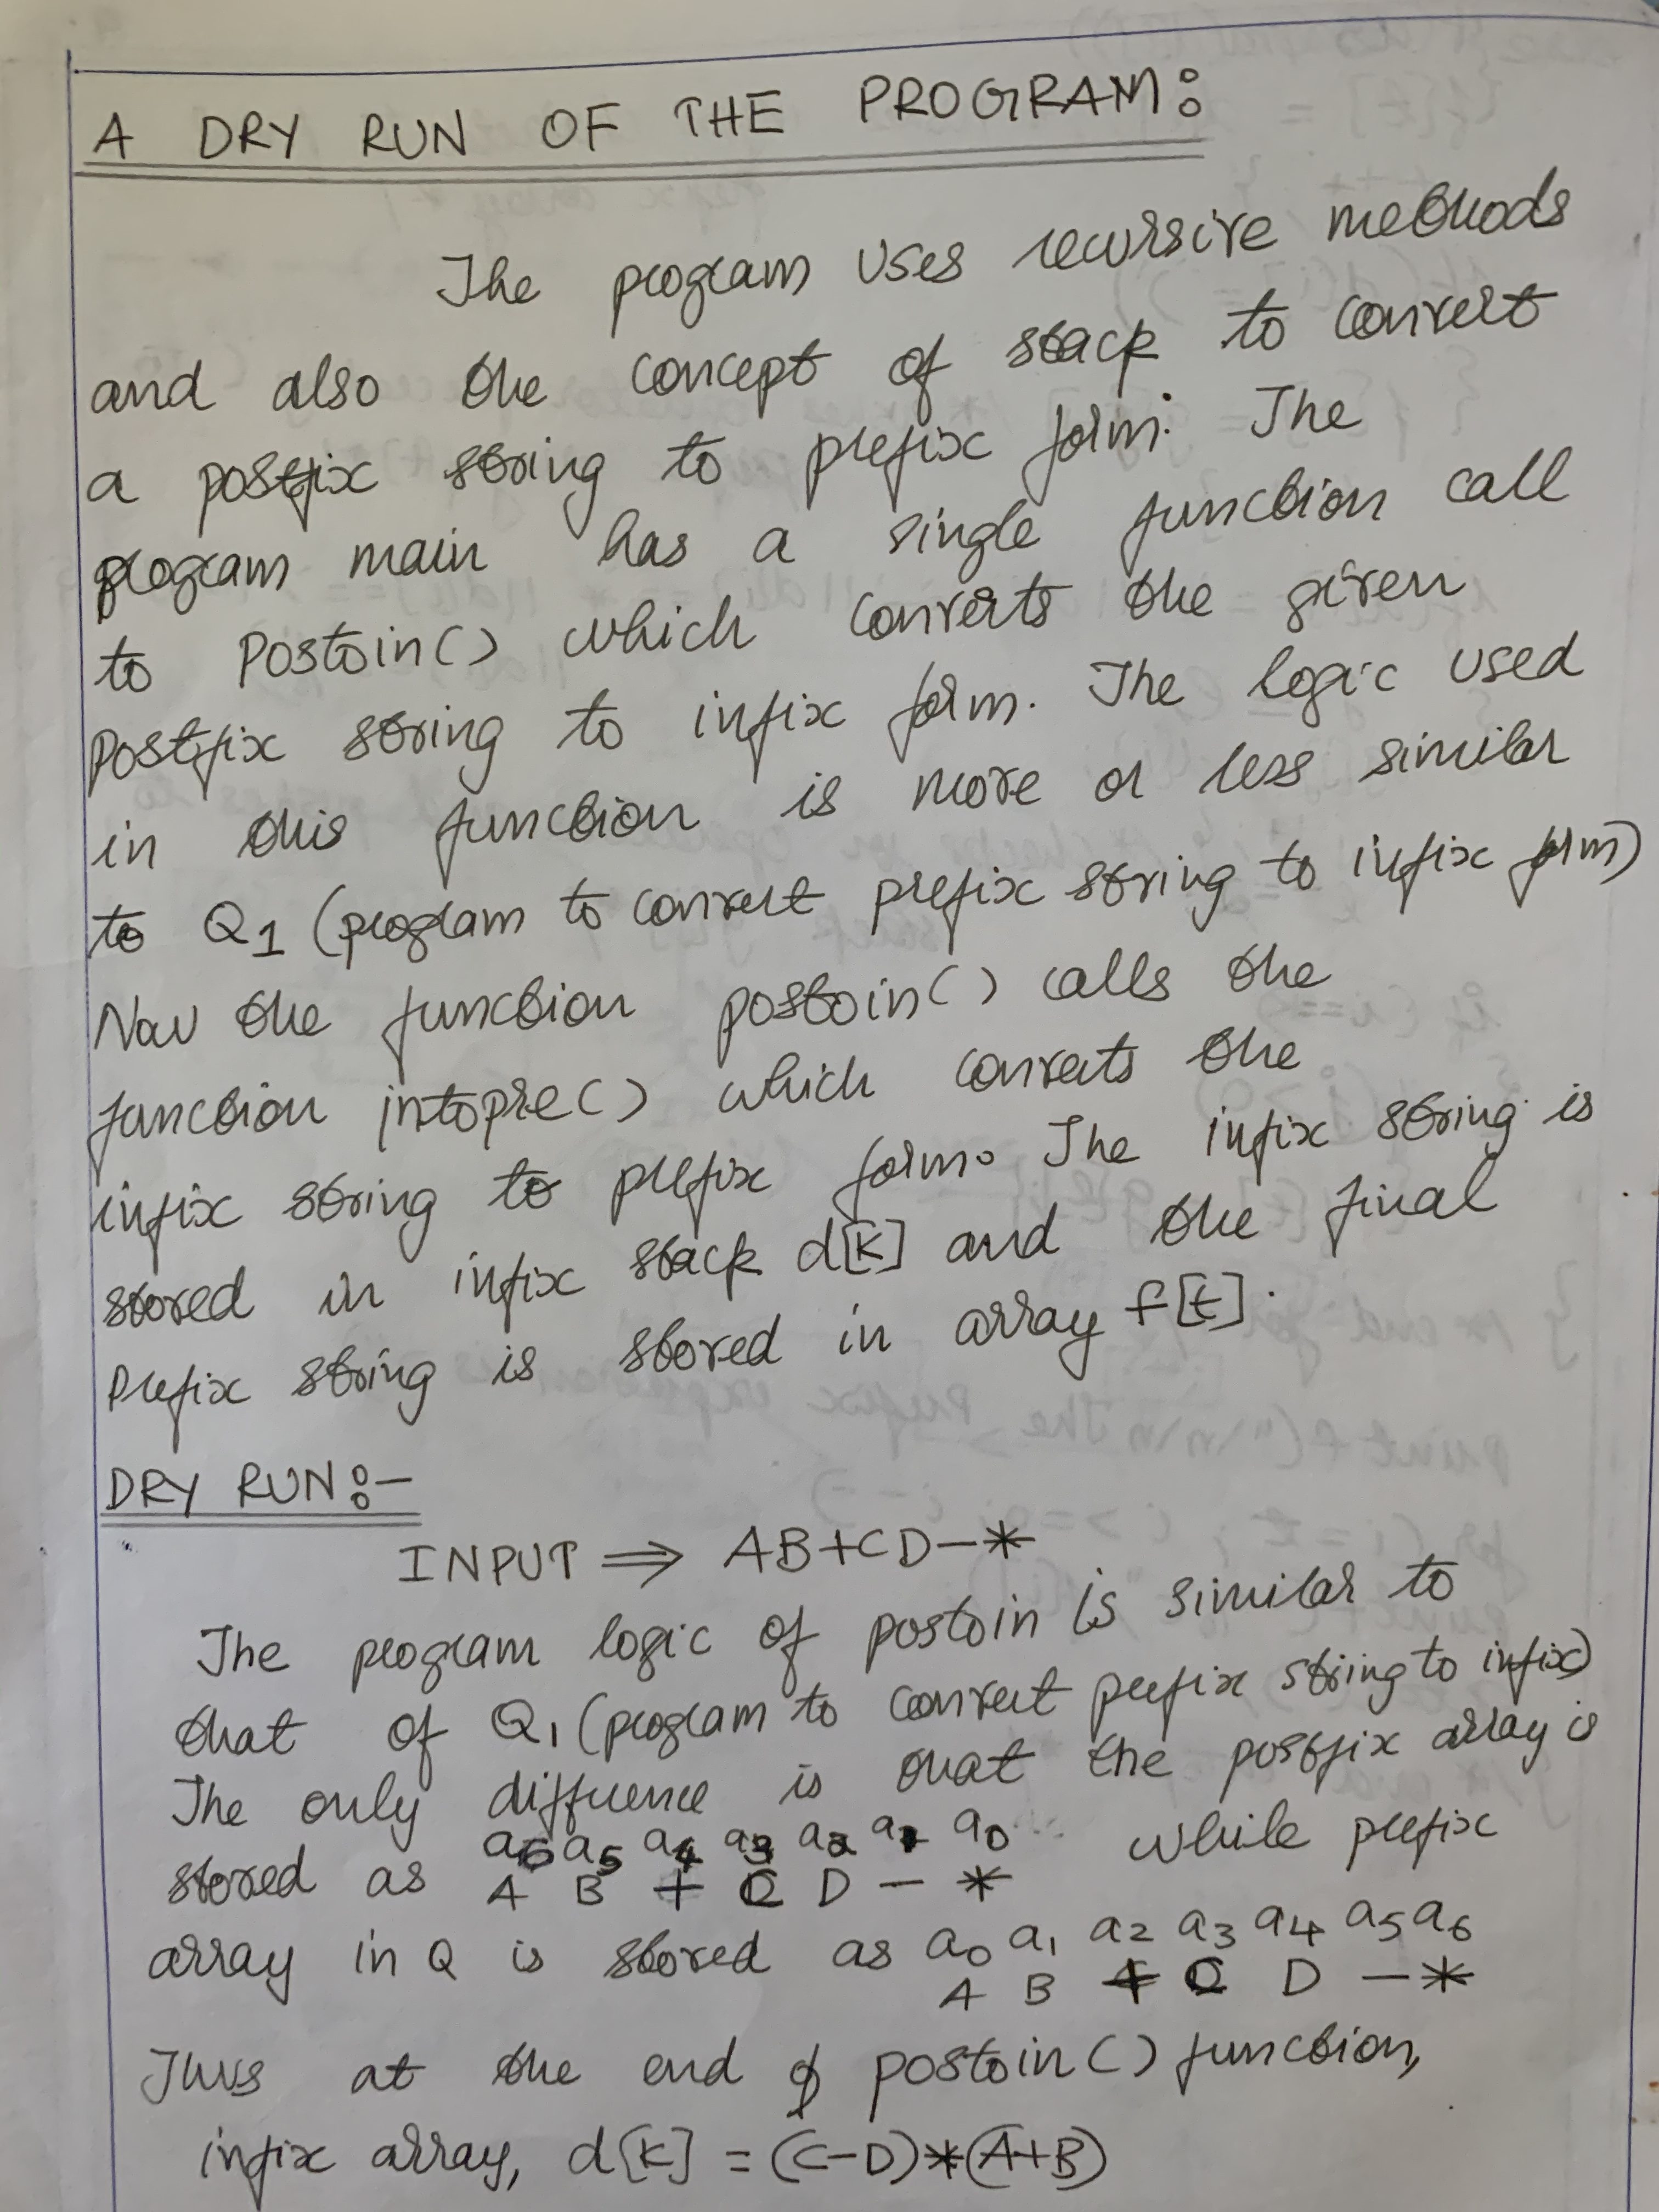 A DRY RUN OF THE PROGRAM:
The program uses recursive methods
and also the concept of stack to convert
a postfix string to prefix form. The
program main has a single function call
to Postoin() which converts the given
postfix string to infix form. The logic used
in this function is more or less similar
to Q1 (program to convert prefix string to infix form)
Now the function postoin() calls the
function intopre() which converts the
infix string to prefix form. The infix string is
stored in infix stack d[k] and the final
prefix string is stored in array f[t].
DRY RUN:-
INPUT ⇒ AB+CD-*
The program logic of postoin is similar to
that of Q1 (program to convert prefix string to infix)
The only difference is that the postfix array is
a6 a5 a4 a3 a2 a1 a0
stored as A B + C D - * while prefix
array in Q is stored as a0 a1 a2 a3 a4 a5 a6
A B + C D - *
Thus at the end of postoin() function,
infix array, d[k] = (C-D)*(A+B)